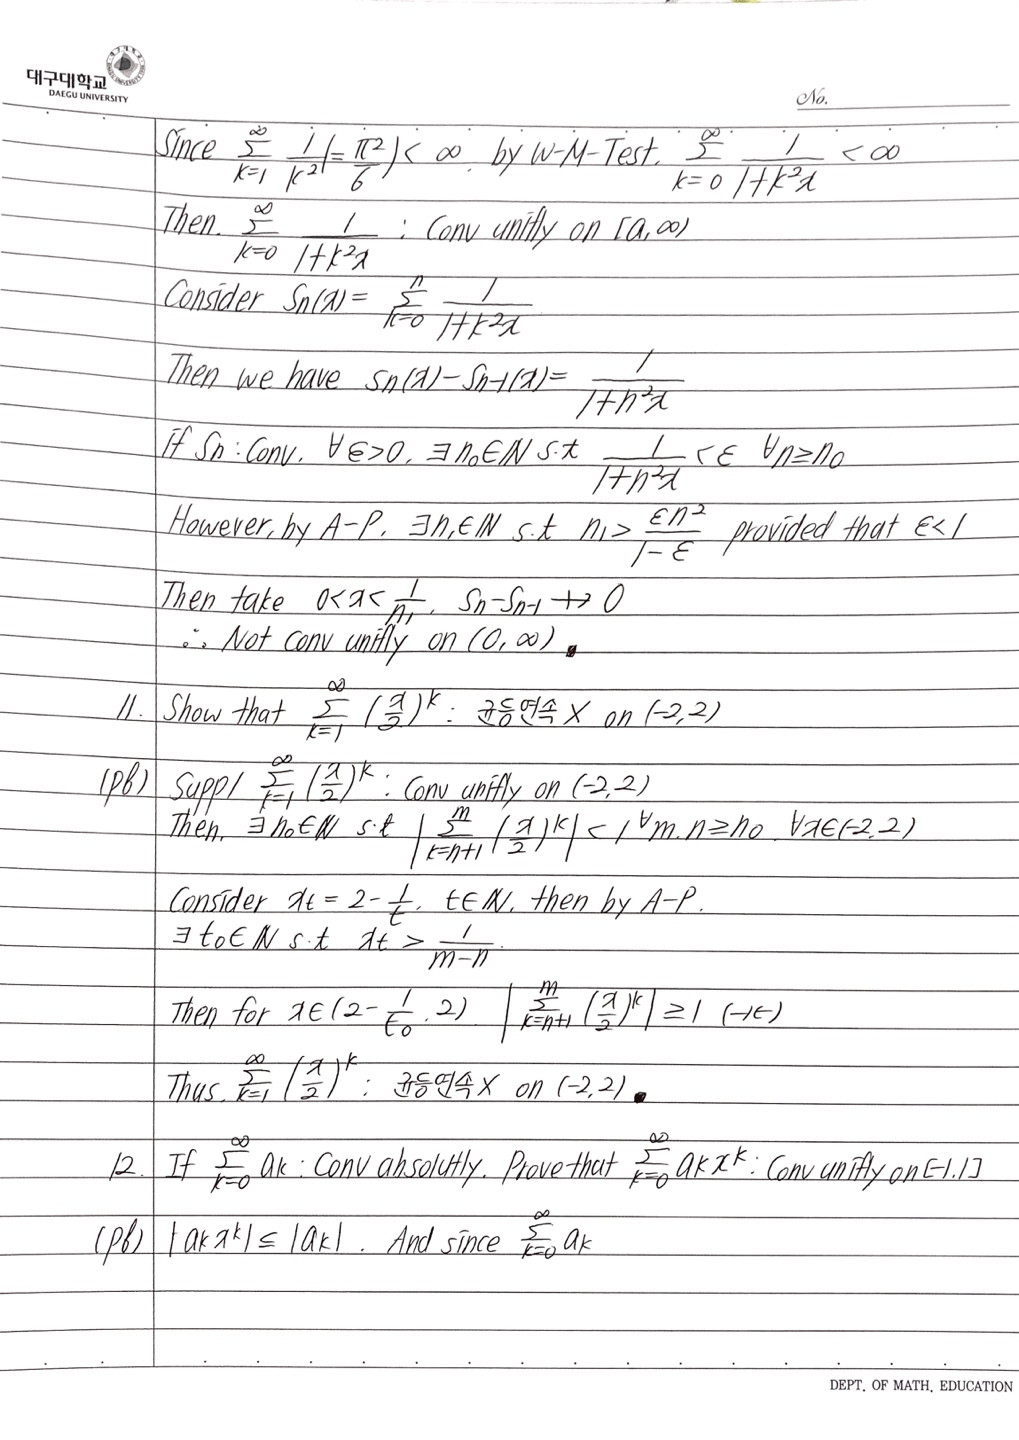 대구대학교
DAEGU UNIVERSITY
No.
Since ∞Σk=1 1/k² (= π²/6) < ∞. by W-M-Test. ∞Σk=0 1/(1+k²x) < ∞
Then. ∞Σk=0 1/(1+k²x) : Conv unifly on [a, ∞)
Consider Sn(x) = nΣk=0 1/(1+k²x)
Then we have Sn(x) - Sn-1(x) = 1/(1+n²x)
if Sn : Conv. ∀ε>0, ∃n₀∈ℕ s.t 1/(1+n²x) < ε ∀n≥n₀
However, by A-P. ∃n₁∈ℕ s.t n₁ > εn²/(1-ε) provided that ε<1
Then take 0<x<1/n₁, Sn-Sn-1 ↛ 0
∴ Not conv unifly on (0, ∞).
11. Show that ∞Σk=1 (x/2)^k : 균등연속 X on (-2,2)
(pf) Supp/ ∞Σk=1 (x/2)^k : Conv unifly on (-2,2)
Then. ∃n₀∈ℕ s.t |mΣk=n+1 (x/2)^k| < 1 ∀m.n≥n₀ ∀x∈(-2,2)
Consider xt = 2-1/t, t∈ℕ, then by A-P.
∃t₀∈ℕ s.t xt > 1/(m-n).
Then for x∈(2-1/t₀, 2) |mΣk=n+1 (x/2)^k| ≥ 1 (→←)
Thus. ∞Σk=1 (x/2)^k : 균등연속 X on (-2,2).
12. If ∞Σk=0 ak : Conv absolutly. Prove that ∞Σk=0 ak x^k : Conv unifly on [-1.1]
(pf) |ak x^k| ≤ |ak|. And since ∞Σk=0 ak
DEPT. OF MATH. EDUCATION